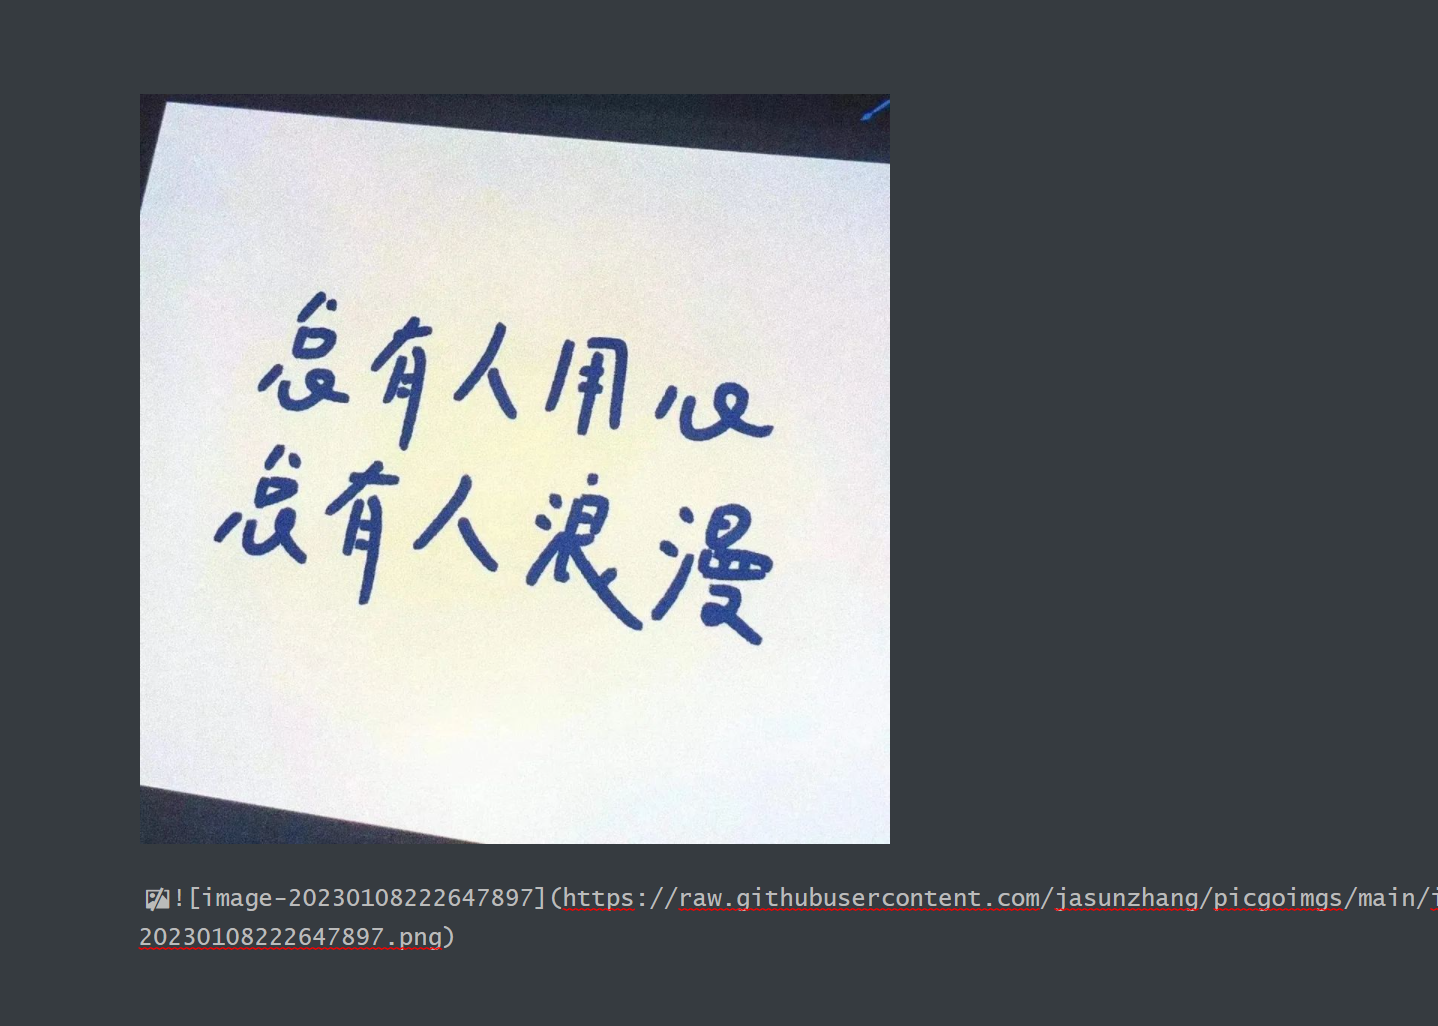 总有人用心
总有人浪漫
![image-20230108222647897](https://raw.githubusercontent.com/jasunzhang/picgoimgs/main/i
20230108222647897.png)